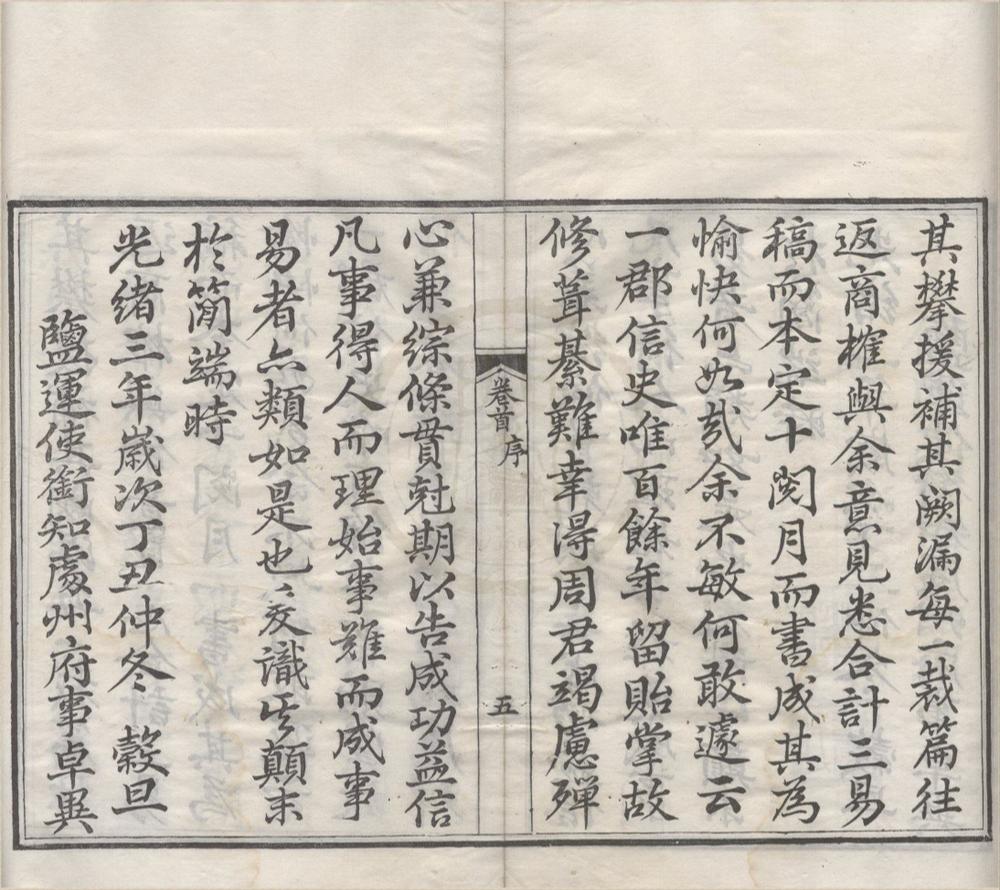 其攀援補其闕漏每一裁篇往
返商榷與余意見悉合計三易
稿而本定十閱月而書成其為
愉快何如哉余不敏何敢遽云
一郡信史唯百餘年留貽掌故
修葺綦難幸得周君竭慮殫
卷首 序
五
心兼綜條貫尅期以告成功益信
凡事得人而理始事難而成事
易者亦類如是也爰識其顛末
於簡端時
光緒三年歲次丁丑仲冬 穀旦
鹽運使銜知處州府事卓異